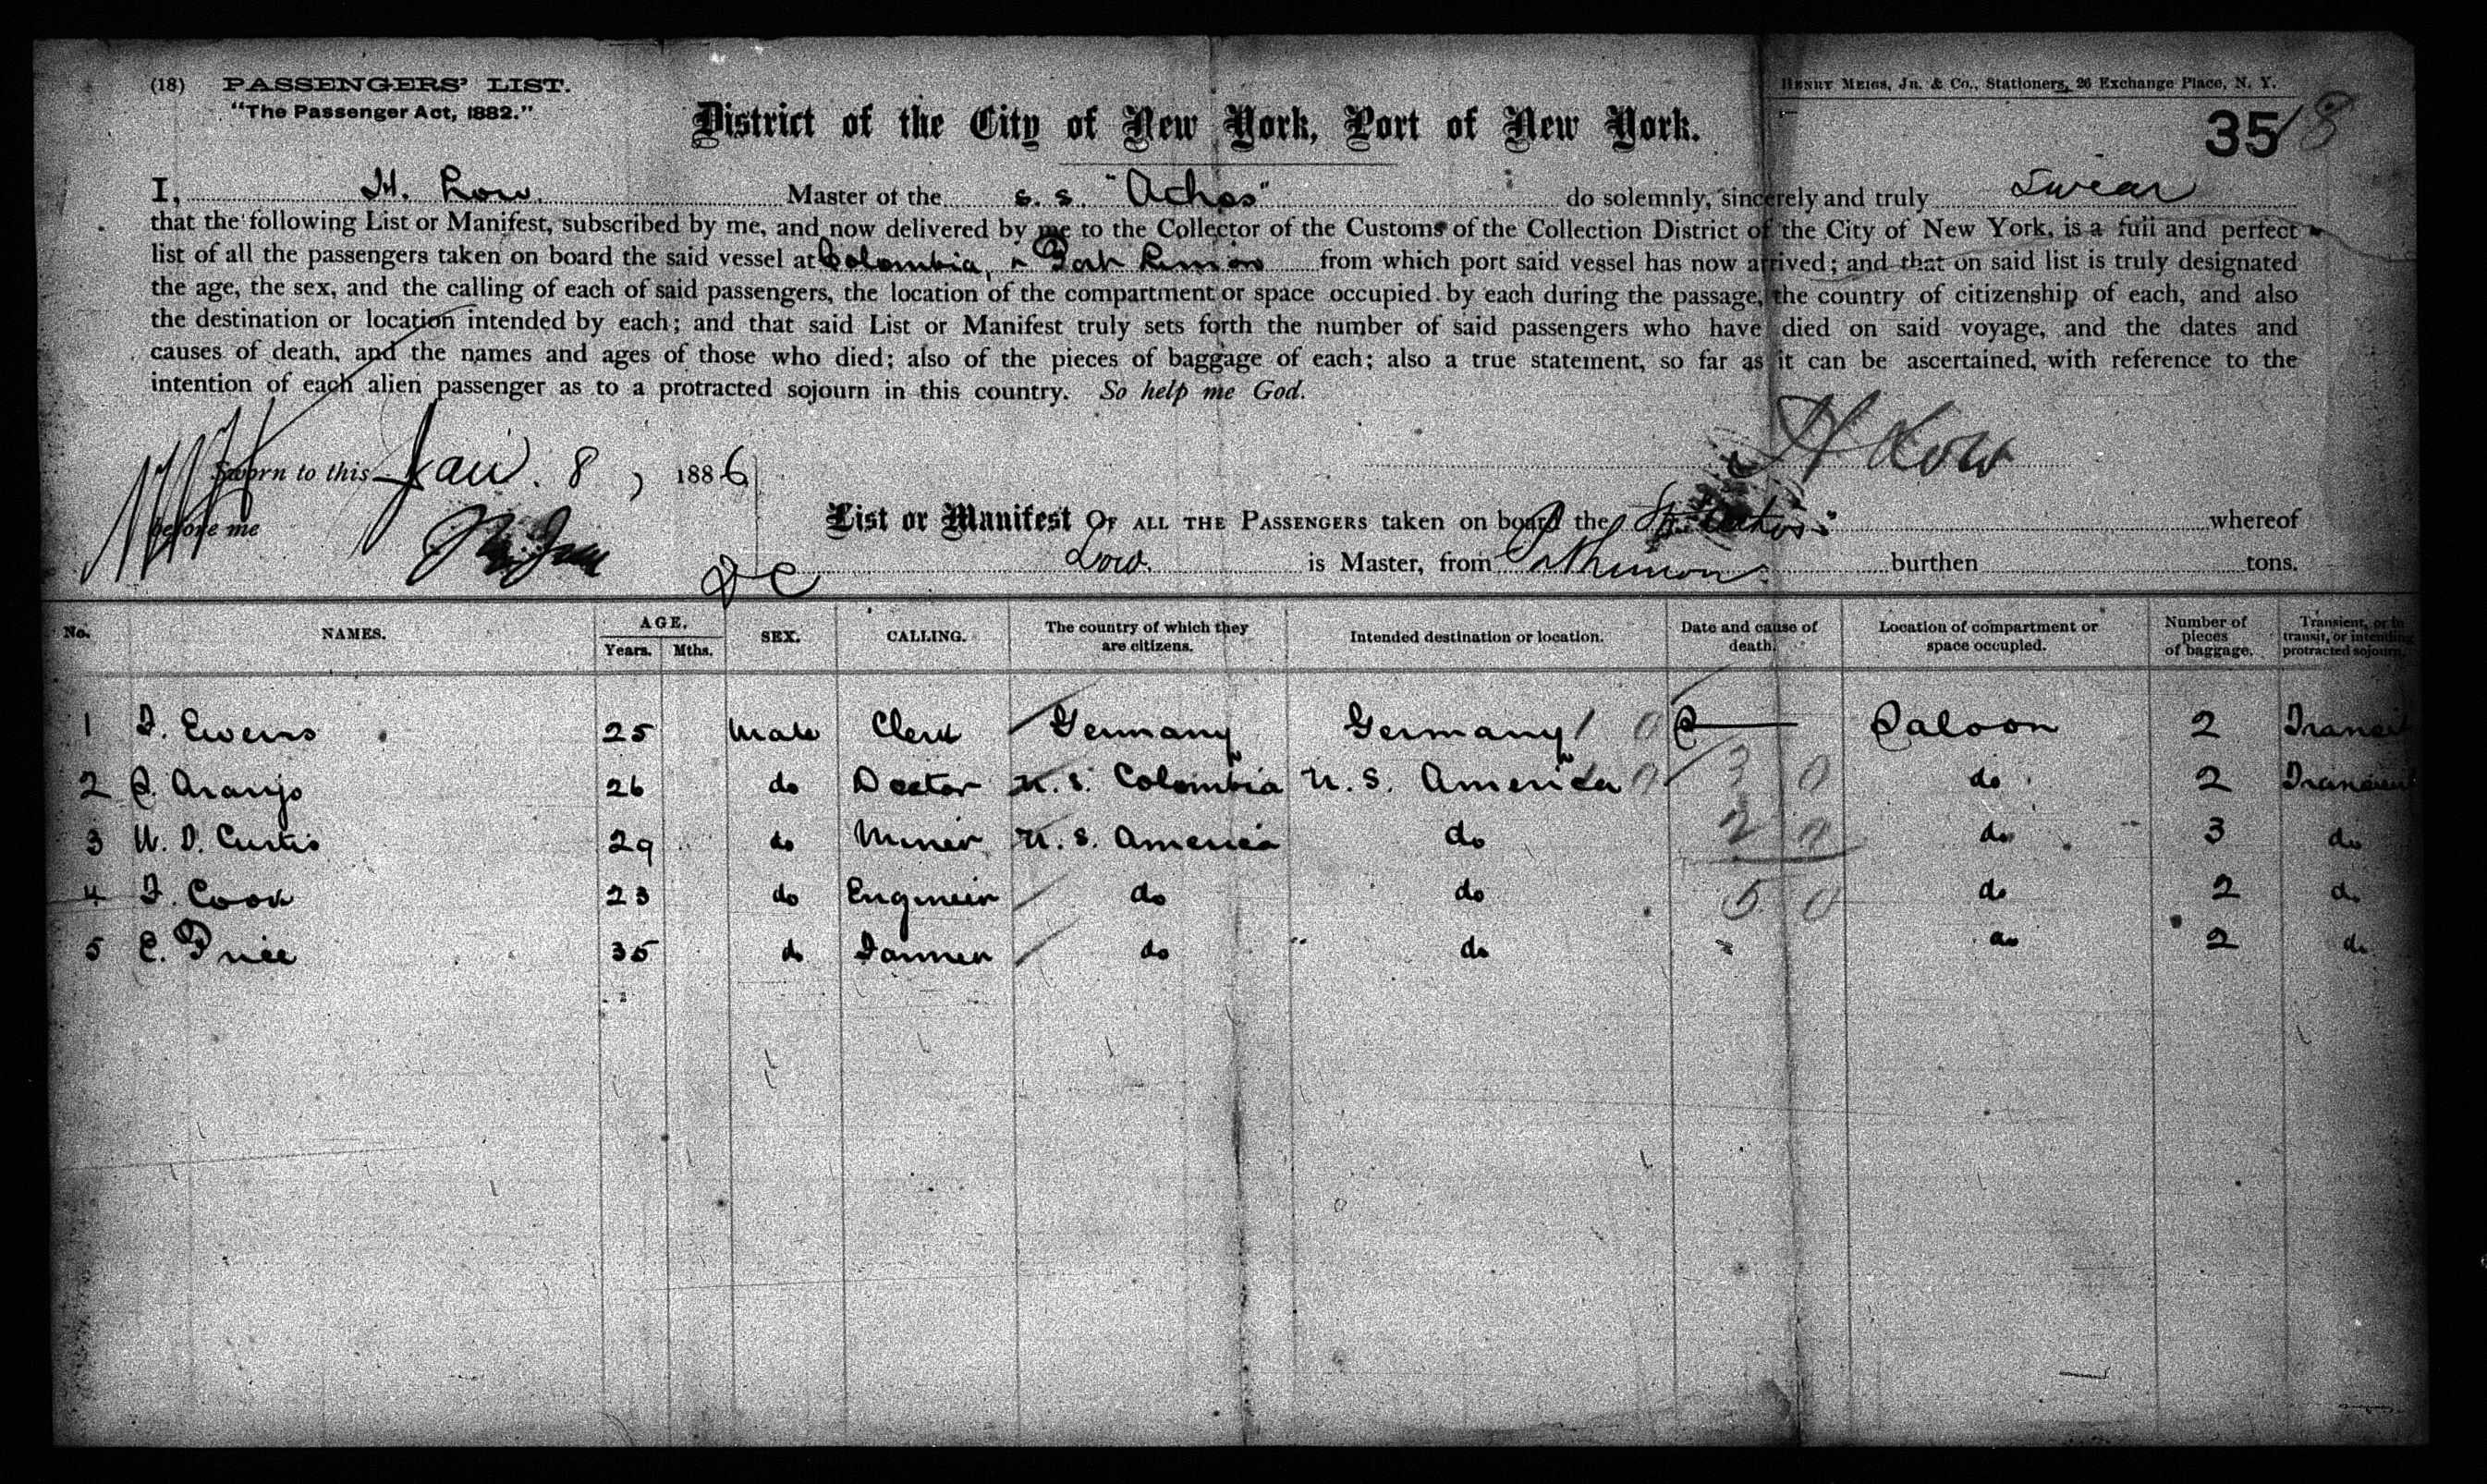 (18) PASSENGERS' LIST.
"The Passenger Act, 1882."
HENRY MEIGS, JR. & Co., Stationers, 26 Exchange Place, N. Y.
District of the City of New York, Port of New York.
35 8
I, H. Low. Master of the s.s. "Athos" do solemnly, sincerely and truly Swear
that the following List or Manifest, subscribed by me, and now delivered by me to the Collector of the Customs of the Collection District of the City of New York, is a full and perfect
list of all the passengers taken on board the said vessel at Colombia, & Port Limon from which port said vessel has now arrived; and that on said list is truly designated
the age, the sex, and the calling of each of said passengers, the location of the compartment or space occupied by each during the passage, the country of citizenship of each, and also
the destination or location intended by each; and that said List or Manifest truly sets forth the number of said passengers who have died on said voyage, and the dates and
causes of death, and the names and ages of those who died; also of the pieces of baggage of each; also a true statement, so far as it can be ascertained, with reference to the
intention of each alien passenger as to a protracted sojourn in this country. So help me God.
H Low
Sworn to this Jan. 8, 1886
before me
List or Manifest OF ALL THE PASSENGERS taken on board the Athos" whereof
Low. is Master, from Pt Limon burthen tons.
No. NAMES. AGE. Years. Mths. SEX. CALLING. The country of which they are citizens. Intended destination or location. Date and cause of death. Location of compartment or space occupied. Number of pieces of baggage. Transient, or in transit, or intending protracted sojourn.
1 F. Ewens 25 Male Clerk Germany Germany / 0 Saloon 2 Transit
2 S. Araujo 26 do Doctor U.S. Colombia U.S. America 0 3 0 do 2 Transient
3 W. D. Curtis 29 do Miner U.S. America do 2 0 do 3 do
4 F. Cook 23 do Engineer do do 5 0 do 2 do
5 E. Price 35 do Farmer do do do 2 do